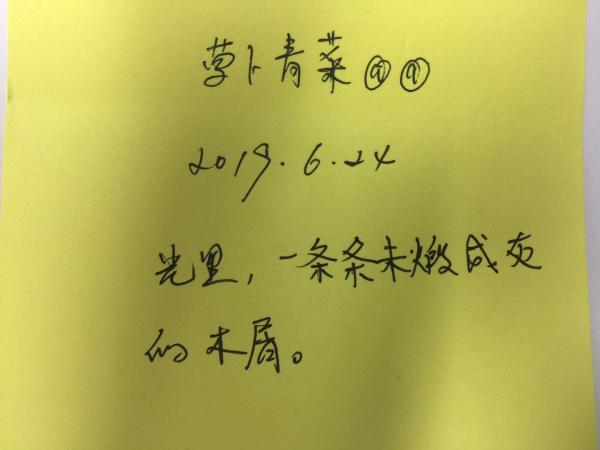 萝卜青菜@@
2019.6.24
光里，一条条未燃成灰
的木屑。